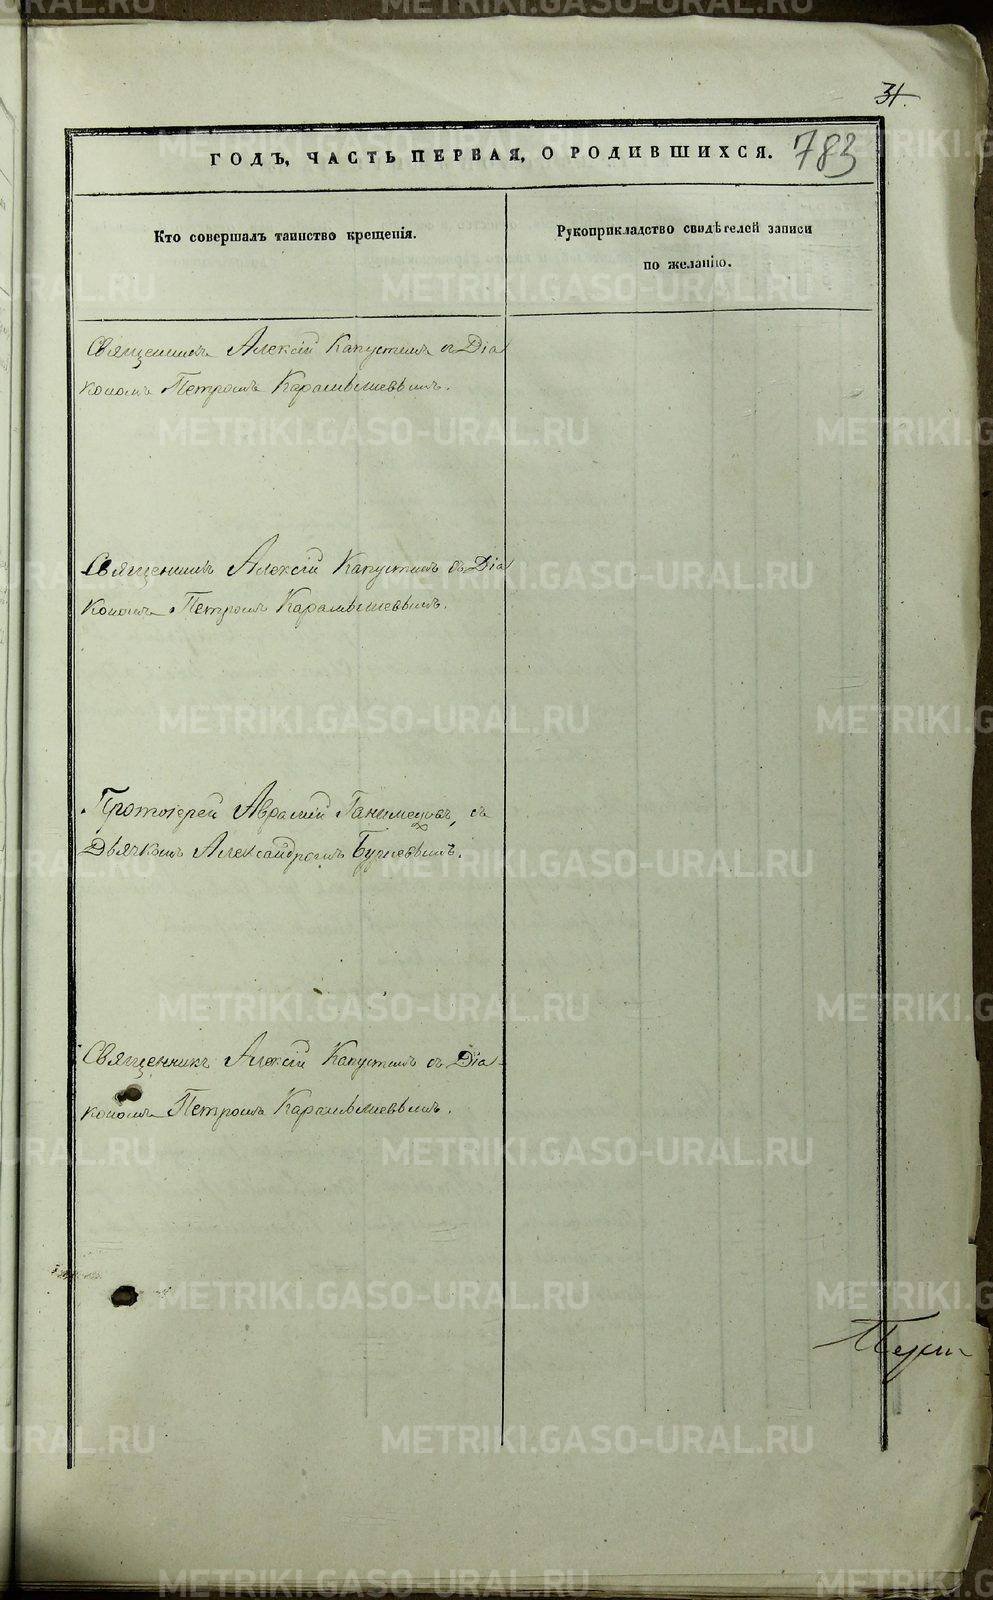 31.
783
ГОДЪ, ЧАСТЬ ПЕРВАЯ, О РОДИВШИХСЯ.
Кто совершалъ таинство крещенія.
Рукоприкладство свидѣтелей записи
по желанію.
Священникъ Алексій Капустинъ съ Діа
кономъ Петромъ Карамышевымъ.
Священникъ Алексій Капустинъ съ Діа
кономъ Петромъ Карамышевымъ.
Протоіерей Аврамій Ганимедовъ, съ
Дьячкомъ Александромъ
Священникъ Алексій Капустинъ съ Діа-
кономъ Петромъ Карамышевымъ.
METRIKI.GASO-URAL.RU